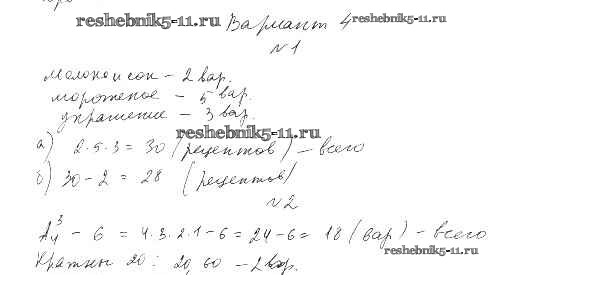 reshebnik5-11.ru Вариант 4 reshebnik5-11.ru
N1
молоко и сок - 2 вар.
мороженое - 5 вар.
украшение - 3 вар.
reshebnik5-11.ru
а) 2·5·3 = 30 (рецептов) - всего
б) 30 - 2 = 28 (рецептов)
N2
A₄³ - 6 = 4·3·2·1 - 6 = 24 - 6 = 18 (вар) - всего
reshebnik5-11.ru
Кратны 20: 20, 60 - 2 вар.